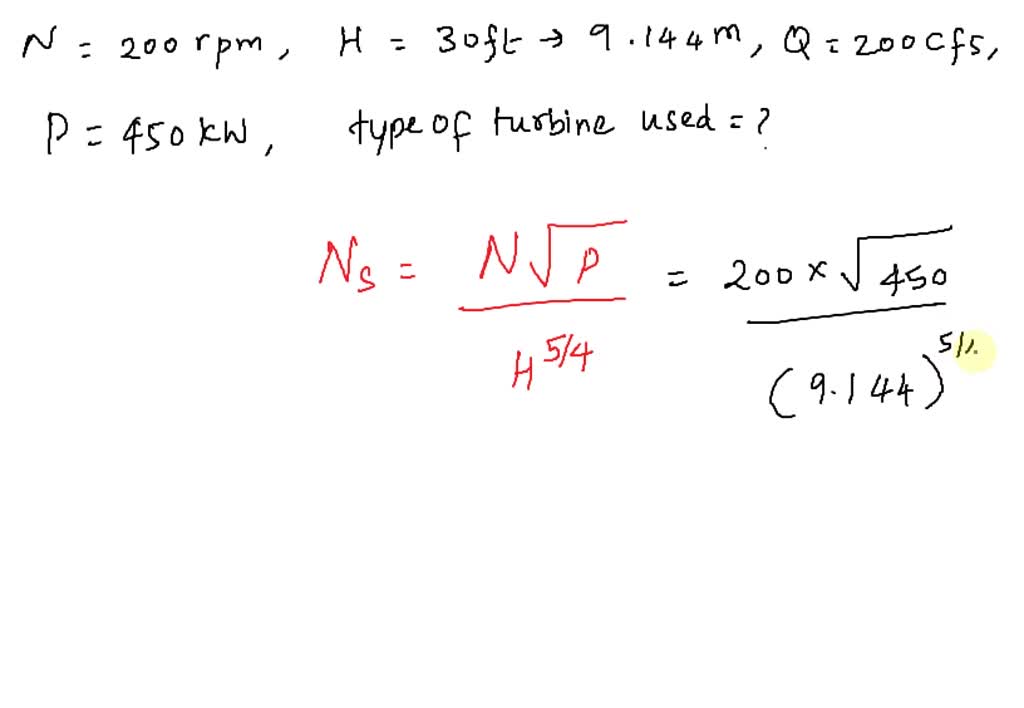 N = 200 rpm, H = 30ft → 9.144m, Q = 200 Cfs,
P = 450 kW, type of turbine used = ?
Ns = N√P / H^5/4 = 200 × √450 / (9.144)^5/